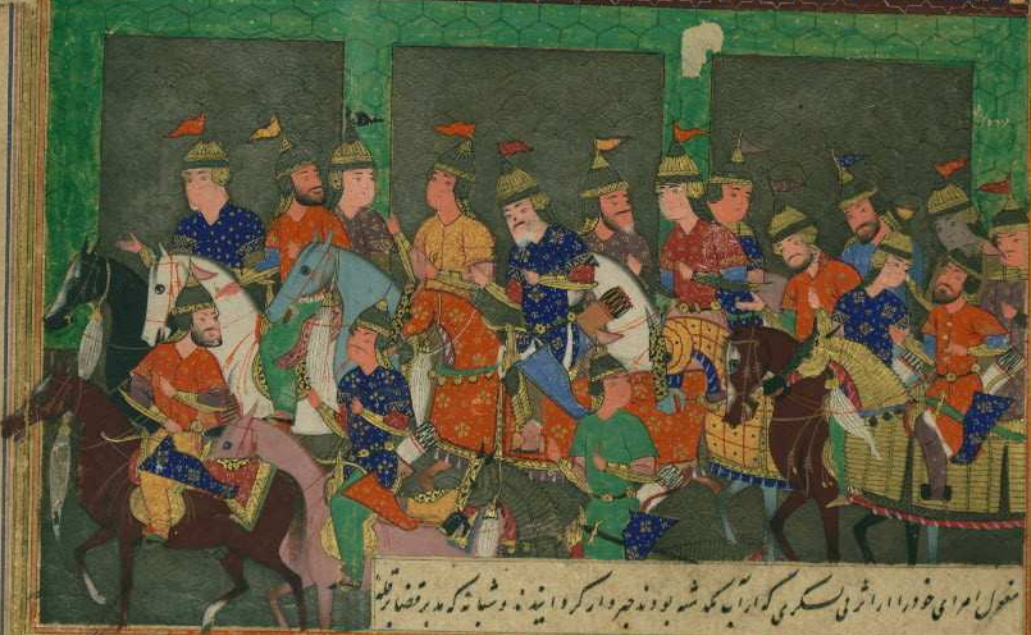 مغول امرای خود را از اثر بی لسکری که از آب گذشته بودند خبردار گردانیدند و شبانه که مدبر قضا بر قلهٔ